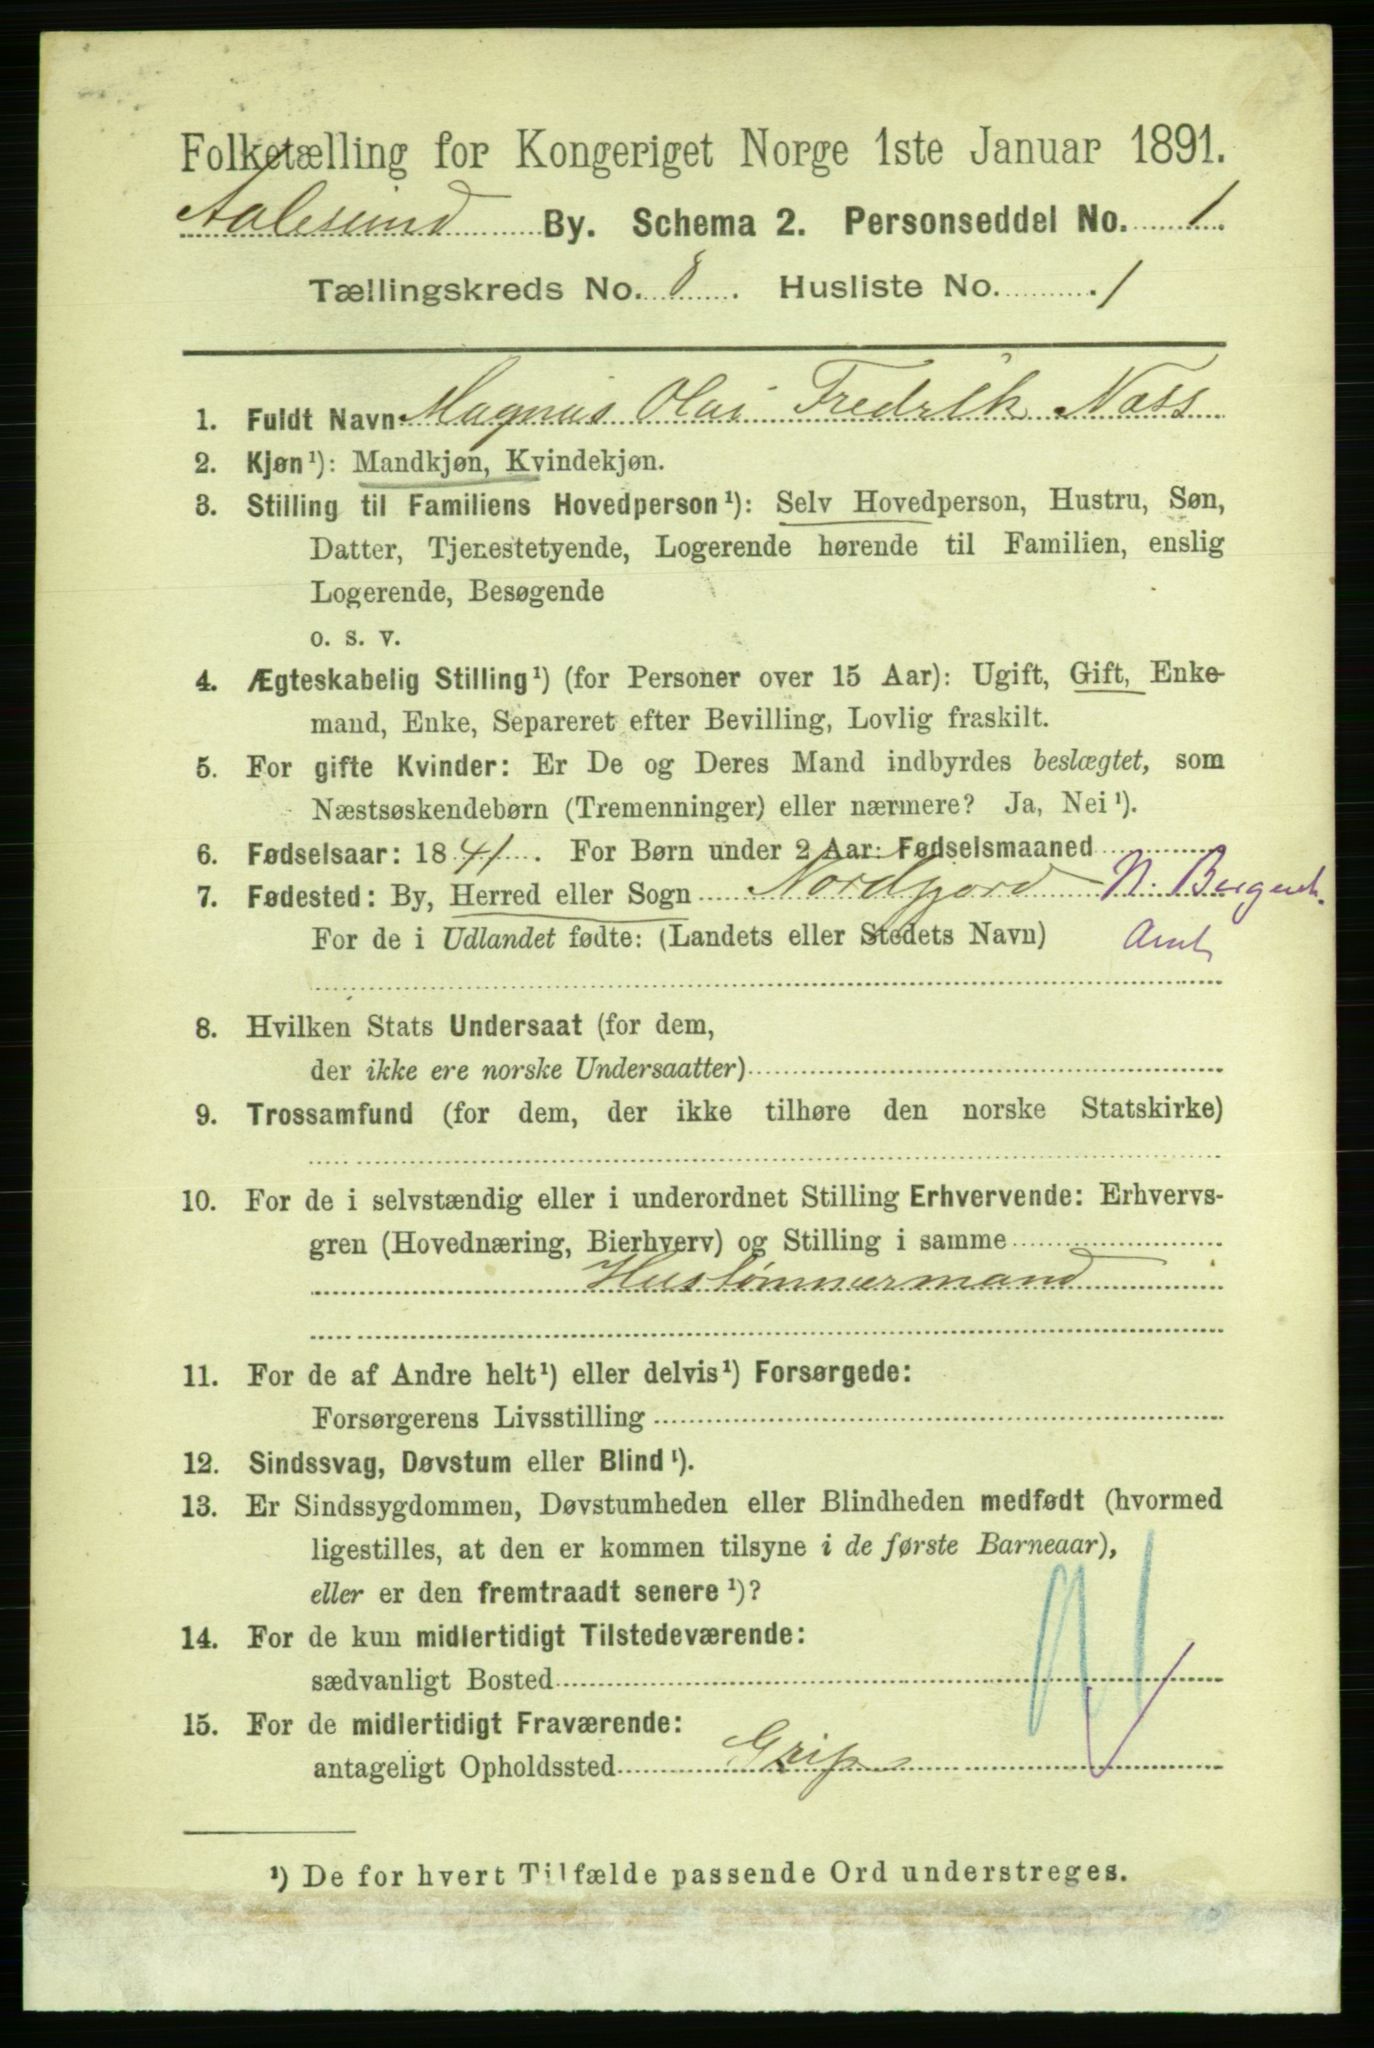 Folketælling for Kongeriget Norge 1ste Januar 1891.
Aalesund By. Schema 2. Personseddel No. 1.
Tællingskreds No. 8. Husliste No. 1
1. Fuldt Navn Magnus Olai Fredrik Næss
2. Kjøn¹): Mandkjøn, Kvindekjøn.
3. Stilling til Familiens Hovedperson¹): Selv Hovedperson, Hustru, Søn,
Datter, Tjenestetyende, Logerende hørende til Familien, enslig
Logerende, Besøgende
o. s. v.
4. Ægteskabelig Stilling¹) (for Personer over 15 Aar): Ugift, Gift, Enke-
mand, Enke, Separeret efter Bevilling, Lovlig fraskilt.
5. For gifte Kvinder: Er De og Deres Mand indbyrdes beslægtet, som
Næstsøskendebørn (Tremenninger) eller nærmere? Ja, Nei¹).
6. Fødselsaar: 1841. For Børn under 2 Aar: Fødselsmaaned
7. Fødested: By, Herred eller Sogn Nordfjord N. Bergenh.
For de i Udlandet fødte: (Landets eller Stedets Navn) Amt
8. Hvilken Stats Undersaat (for dem,
der ikke ere norske Undersaatter)
9. Trossamfund (for dem, der ikke tilhøre den norske Statskirke)
10. For de i selvstændig eller i underordnet Stilling Erhvervende: Erhvervs-
gren (Hovednæring, Bierhverv) og Stilling i samme
Hustømmermand
11. For de af Andre helt¹) eller delvis¹) Forsørgede:
Forsørgerens Livsstilling
12. Sindssvag, Døvstum eller Blind¹).
13. Er Sindssygdommen, Døvstumheden eller Blindheden medfødt (hvormed
ligestilles, at den er kommen tilsyne i de første Barneaar),
eller er den fremtraadt senere¹)?
14. For de kun midlertidigt Tilstedeværende:
sædvanligt Bosted
15. For de midlertidigt Fraværende:
antageligt Opholdssted Grip
¹) De for hvert Tilfælde passende Ord understreges.